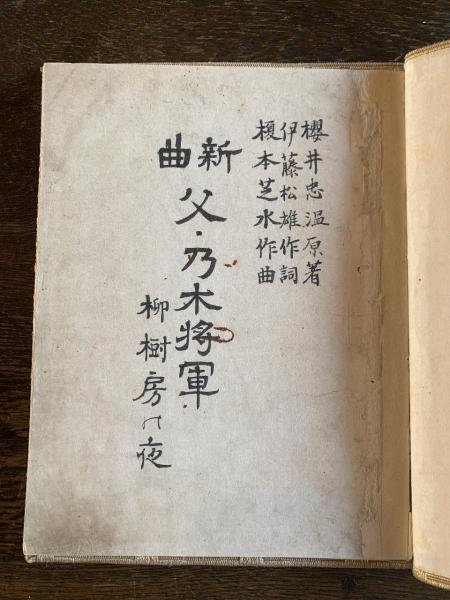 櫻井忠温原著
伊藤松雄作詞
榎本芝水作曲
新曲
父・乃木將軍
柳樹房の夜